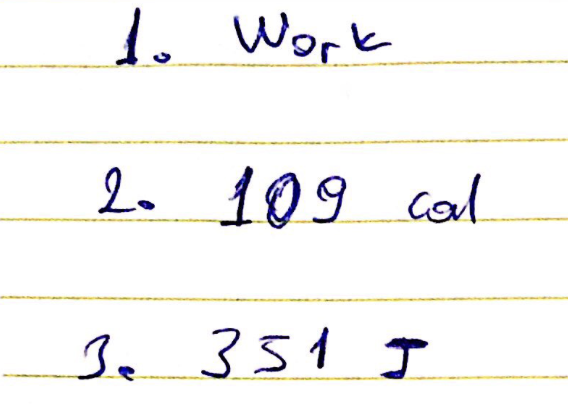 1. Work
2. 109 cal
3. 351 J